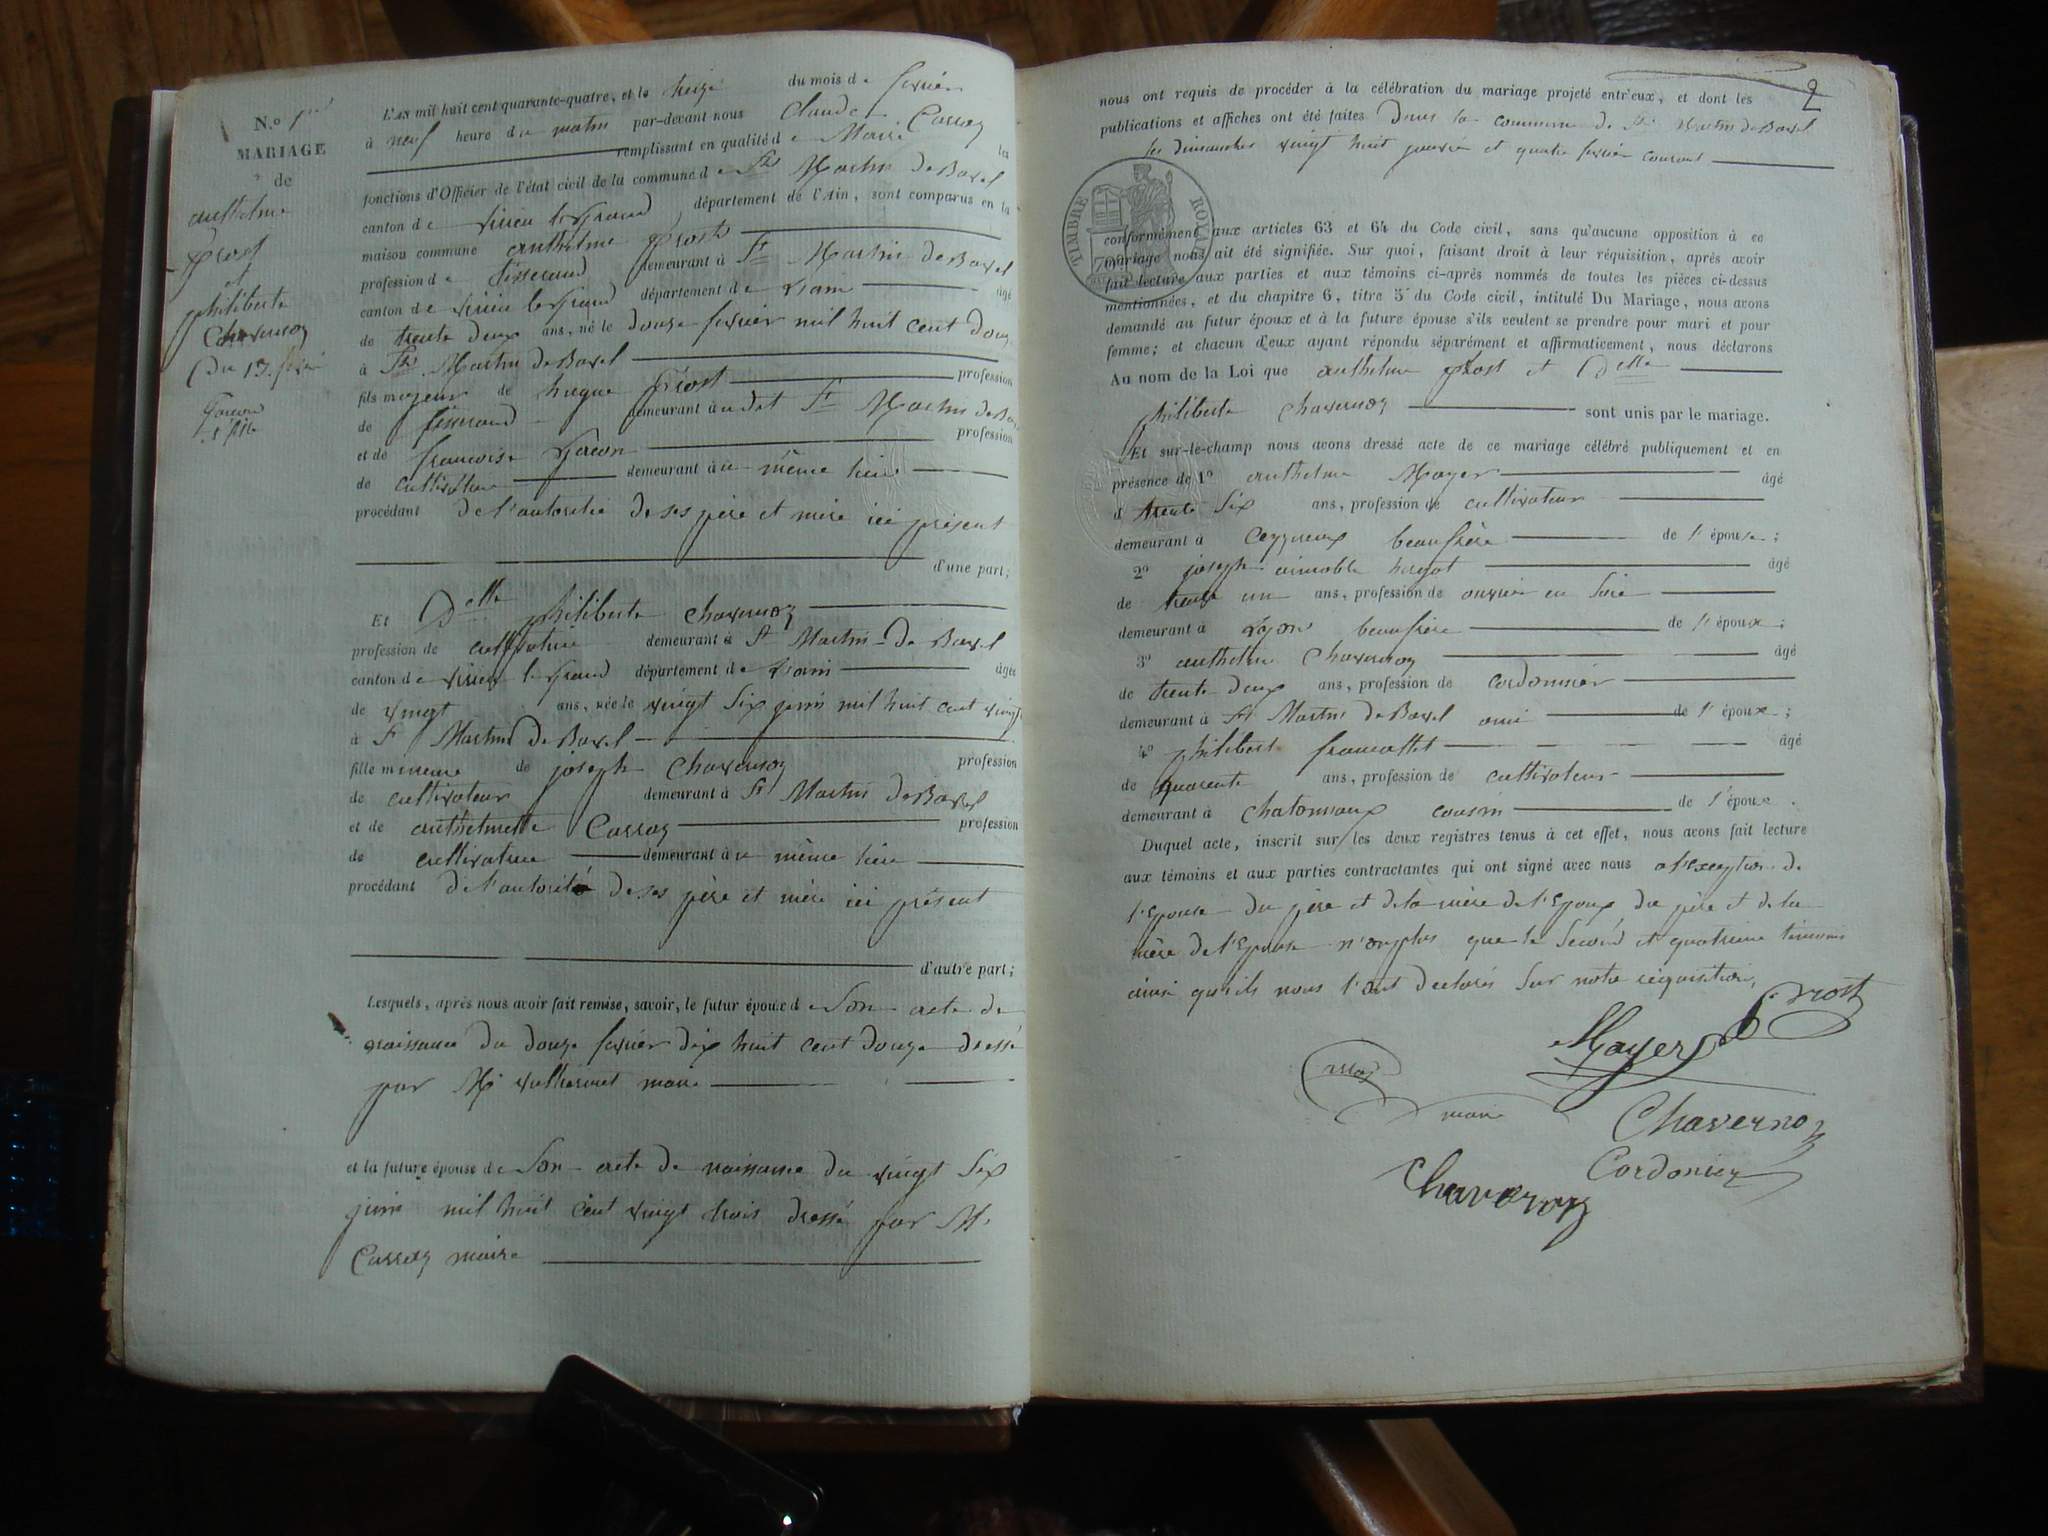 N.º 1er
MARIAGE
de
anthelme
prost
et
philiberte
Chavernoz
Du 13. février
L'AN mil huit cent quarante-quatre, et le treize du mois de février
à neuf heure du matin par-devant nous Claude Carroz
remplissant en qualité de Maire les
fonctions d'Officier de l'état civil de la commune de St Martin de Bavel
canton de virieu le grand, département de l'Ain, sont comparus en la
maison commune anthelme prost
profession de tisserand demeurant à St Martin de Bavel
canton de virieu le grand département de l'ain âgé
de trente deux ans, né le douze fevrier mil huit cent douze
à St Martin de Bavel
fils majeur de hugue prost profession
de tisserand demeurant à udt St Martin de Bavel
et de francoise Gacon profession
de cultivatrice demeurant à u même lieu
procédant de l'autorité de ses père et mère ici présent
d'une part;
Et Delle philiberte chavernoz
profession de cultivatrice demeurant à St Martin de Bavel
canton de virieu le grand département de l'ain âgée
de vingt ans, née le vingt six juin mil huit cent vingt
à St Martin de Bavel
fille mineure de joseph chavernoz profession
de cultivateur demeurant à St Martin de Bavel
et de anthelmette Carroz profession
de cultivatrice demeurant à u même lieu
procédant de l'autorité de ses père et mère ici présent
d'autre part;
Lesquels, après nous avoir fait remise, savoir, le futur époux de Son acte de
naissance du douze fevrier dix huit cent douze dressé
par Mr maire
et la future épouse de Son acte de naissance du vingt Six
juin mil huit cent vingt trois dressé par Mr
Carroz maire
2
nous ont requis de procéder à la célébration du mariage projeté entr'eux, et dont les
publications et affiches ont été faites Dans la commune de St Martin de Bavel
les dimanches vingt huit janvier et quatre fevrier courant
TIMBRE ROYAL
conformément aux articles 63 et 64 du Code civil, sans qu'aucune opposition à ce
mariage nous ait été signifiée. Sur quoi, faisant droit à leur réquisition, après avoir
fait lecture aux parties et aux témoins ci-après nommés de toutes les pièces ci-dessus
mentionnées, et du chapitre 6, titre 5 du Code civil, intitulé Du Mariage, nous avons
demandé au futur époux et à la future épouse s'ils veulent se prendre pour mari et pour
femme; et chacun d'eux ayant répondu séparément et affirmativement, nous déclarons
Au nom de la Loi que anthelme prost et Delle
philiberte chavernoz sont unis par le mariage.
Et sur-le-champ nous avons dressé acte de ce mariage célébré publiquement et en
présence de 1º anthelme Mayer âgé
d trente Six ans, profession de cultivateur
demeurant à Ceyzerieux beaufrère de l'épouse;
2º joseph aimable âgé
de trente un ans, profession de ouvrier en Soie
demeurant à Lyon beaufrère de l'époux;
3º anthelme Chavernoz âgé
de trente deux ans, profession de cordonnier
demeurant à St Martin de Bavel ami de l'époux;
4º philibert francallet âgé
de quarente ans, profession de cultivateur
demeurant à chatonnaux cousin de l'épouse.
Duquel acte, inscrit sur les deux registres tenus à cet effet, nous avons fait lecture
aux témoins et aux parties contractantes qui ont signé avec nous a l'exception de
l'Epouse du père et de la mère de l'Epoux du père et de la
mère de l'Epouse n'on plus que le Second et quatrieme témoins
ainsi qu'ils nous l'ont declarés Sur notre requisition,
Prost
Mayer
Carroz
maire
Chavernoz
Cordonier
Chavernoz